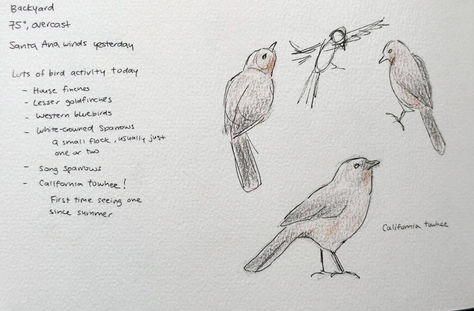 Backyard
75°, overcast
Santa Ana winds yesterday
Lots of bird activity today
- House finches
- Lesser goldfinches
- Western bluebirds
- White-crowned Sparrows
a small flock, usually just
one or two
- Song Sparrows
- California towhee!
First time seeing one
since summer
California towhee